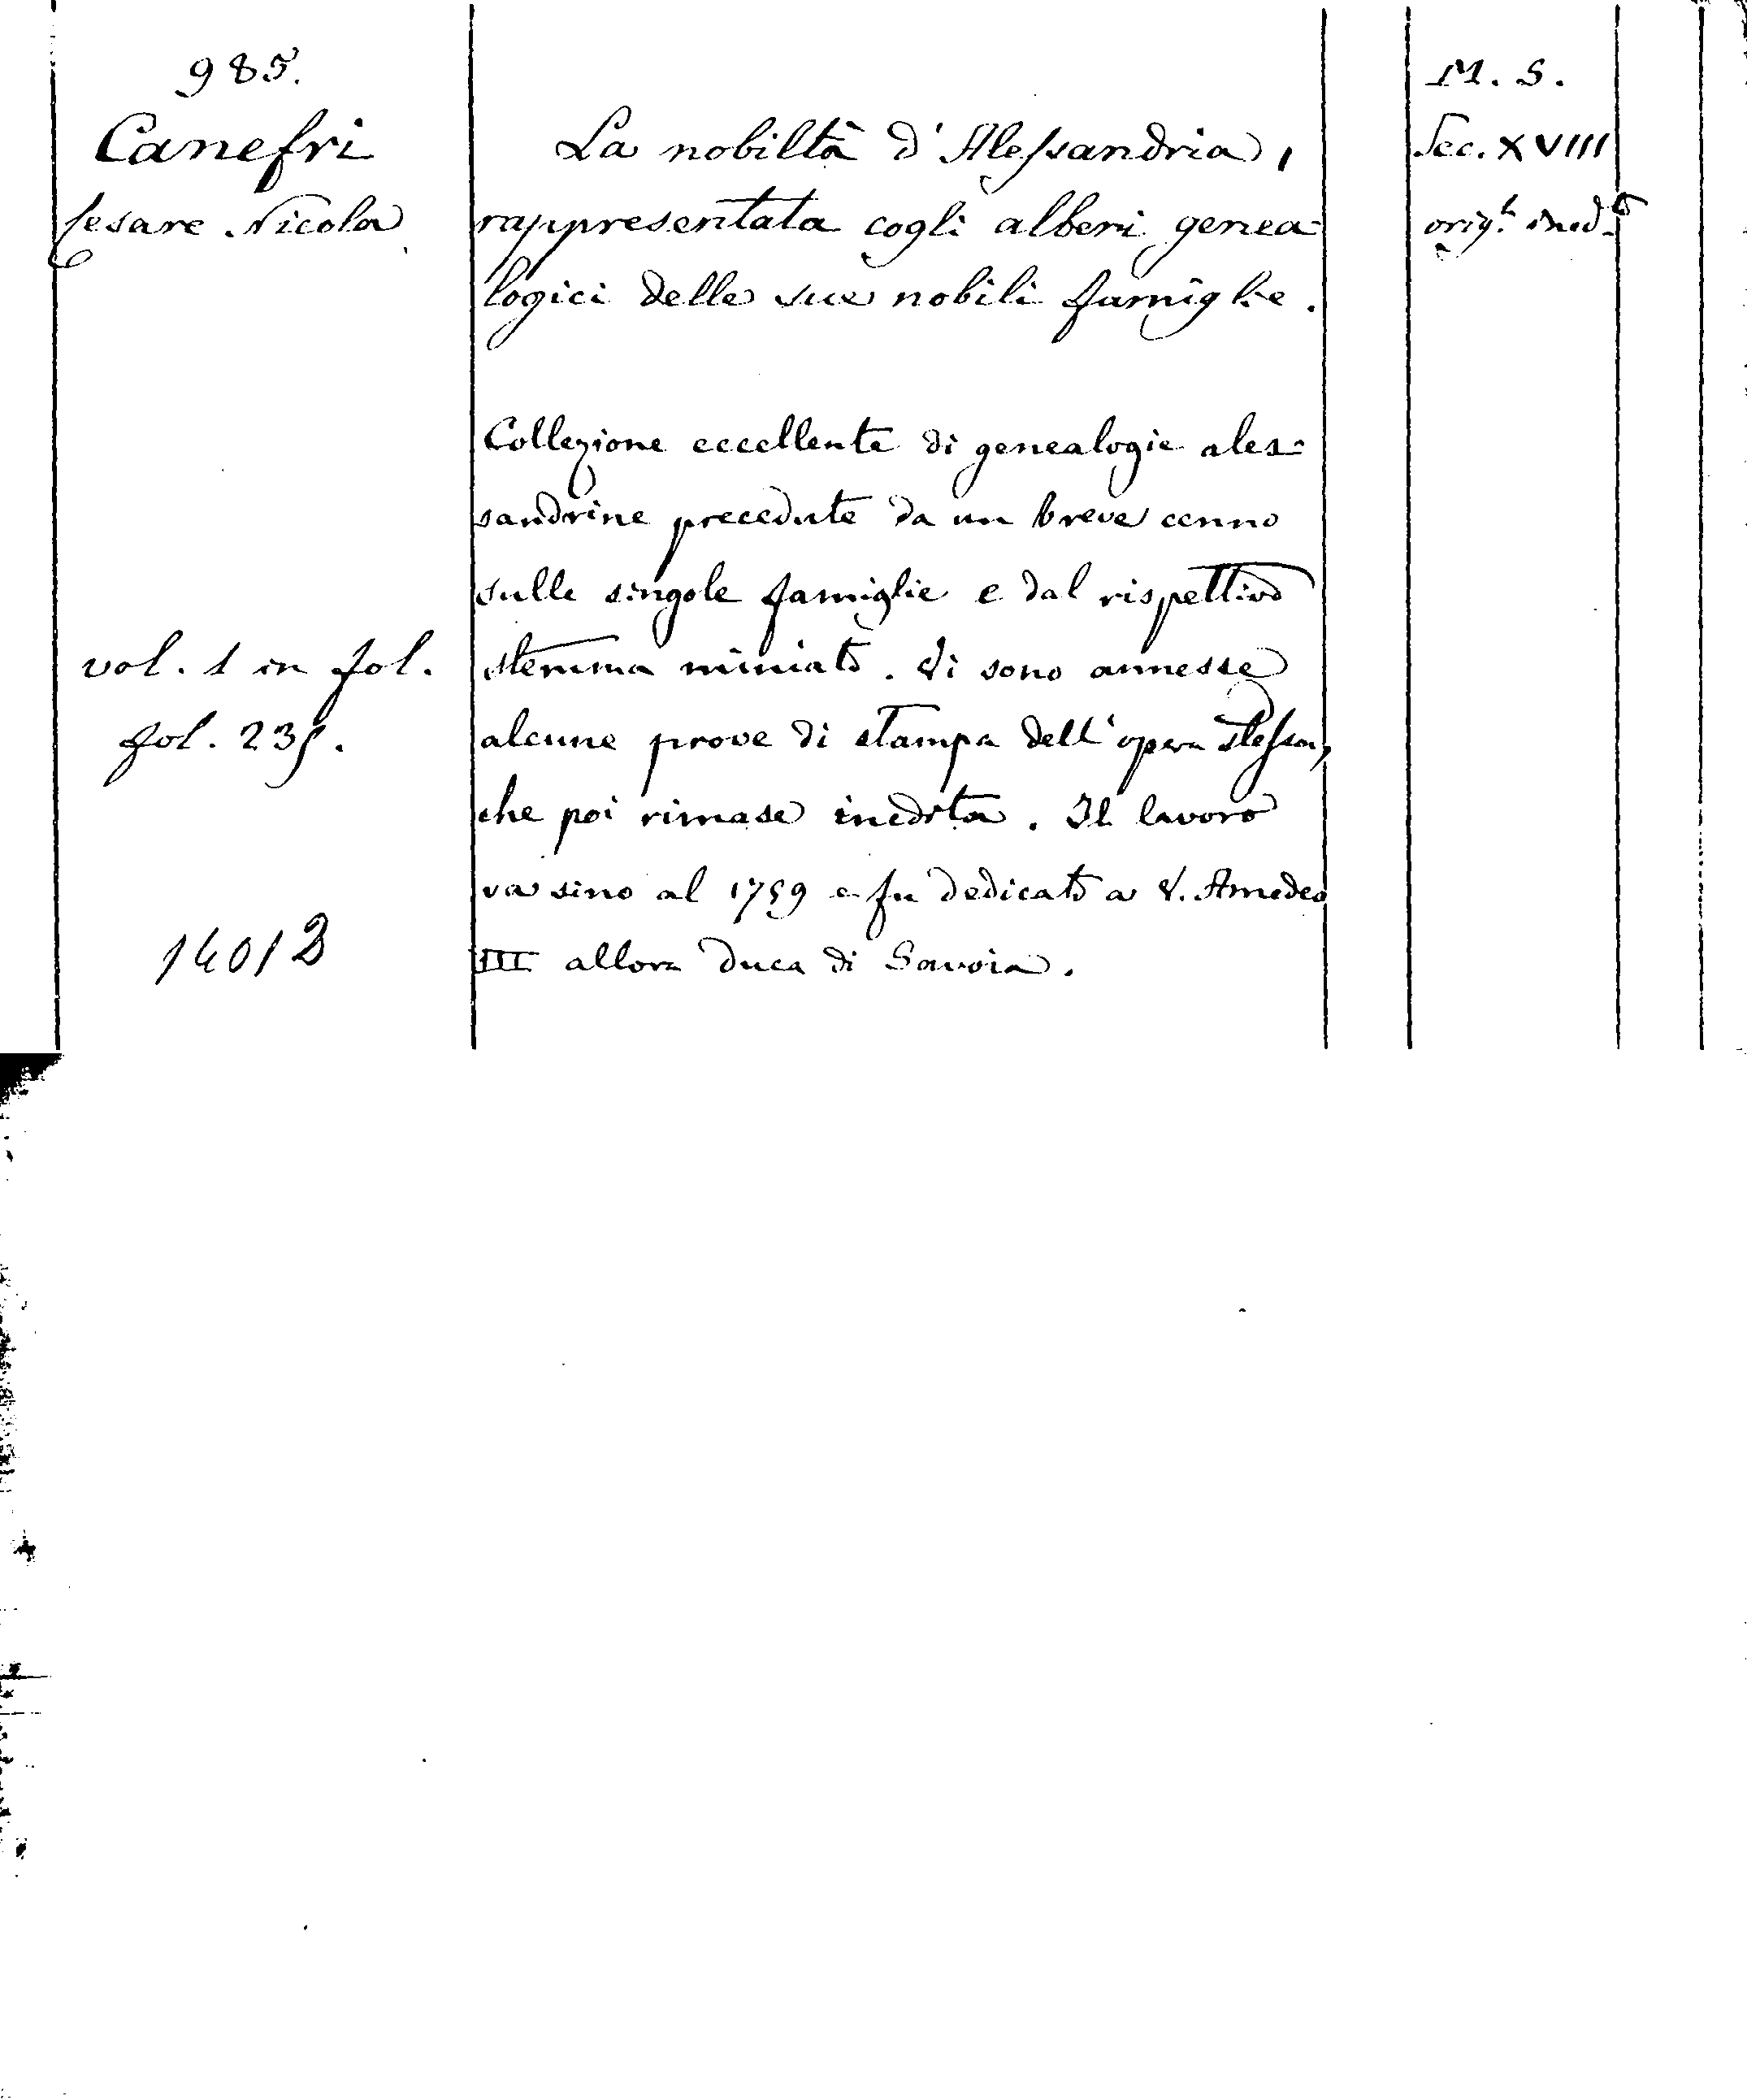 985.
Canefri
Cesare Nicola
vol. 1 in fol.
fol. 235.
14013
La nobiltà d'Alessandria,
rappresentata cogli alberi genea-
logici delle sue nobili famiglie.
Collezione eccellente di genealogie ales=
sandrine precedute da un breve cenno
sulle singole famiglie e dal rispettivo
stemma miniato. Vi sono annesse
alcune prove di stampa dell'opera stessa,
che poi rimase inedita. Il lavoro
va sino al 1759 e fu dedicato a V. Amedeo
III allora Duca di Savoia.
M. S.
Sec. XVIII
orig.le ined.to